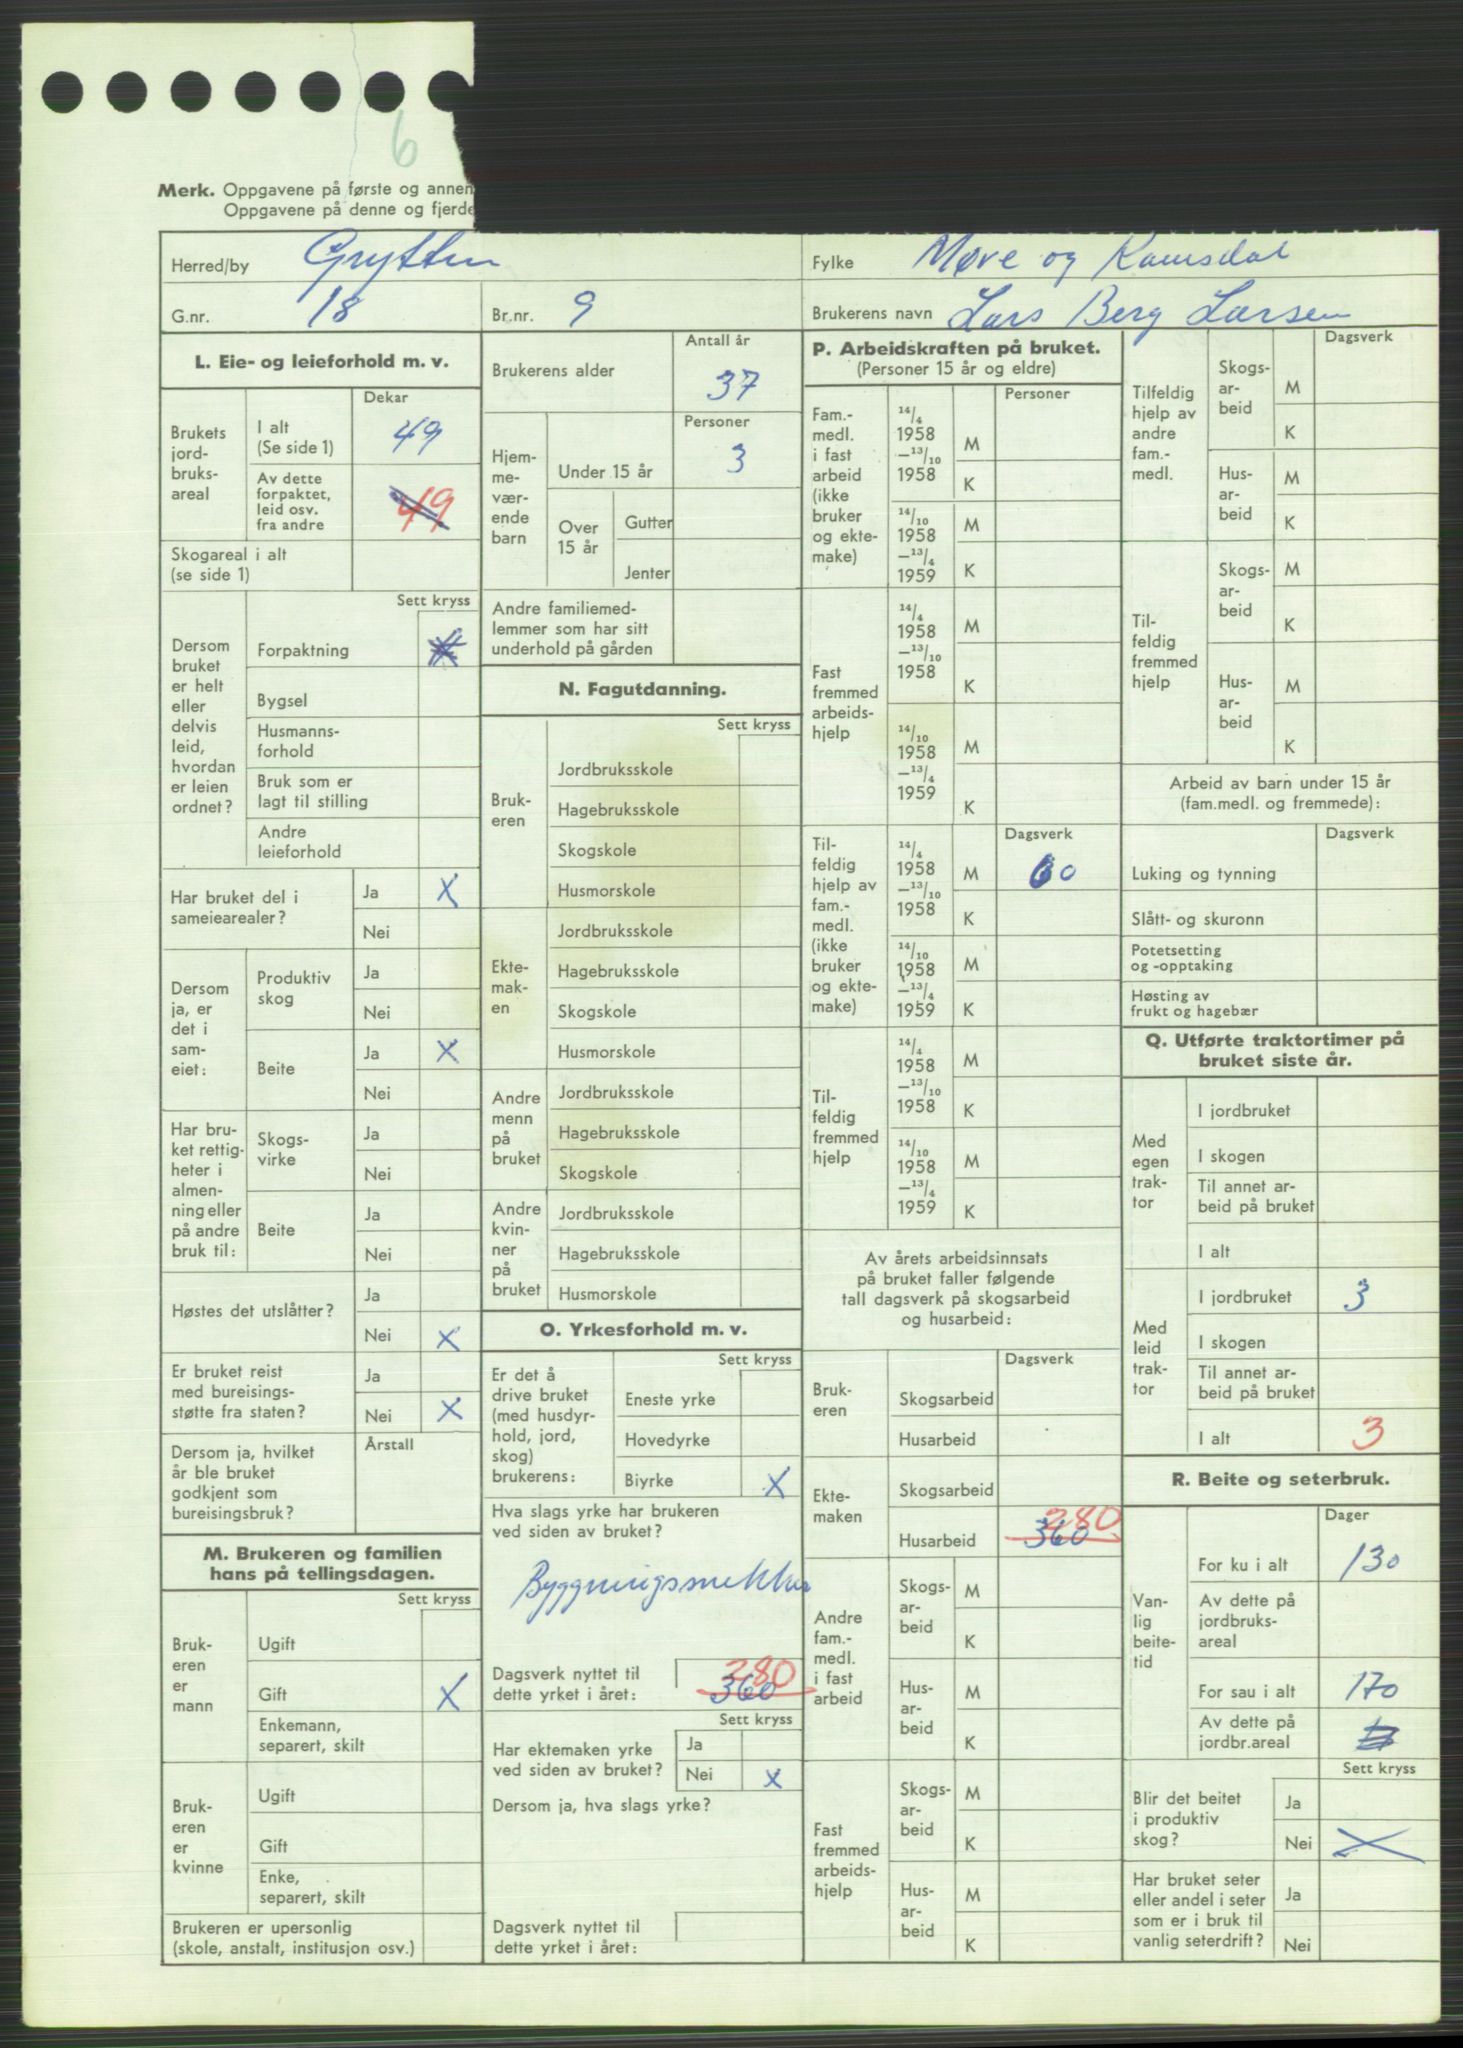 6
Merk. Oppgavene på første og annen
Oppgavene på denne og fjerde
Herred/by Grytten
Fylke Møre og Romsdal
G.nr. 18
Br.nr. 9
Brukerens navn Lars Berg Larsen
L. Eie- og leieforhold m. v.
Dekar
Brukets jord- bruks- areal
I alt (Se side 1) 49
Av dette forpaktet, leid osv. fra andre 49
Skogareal i alt (se side 1)
Sett kryss
Dersom bruket er helt eller delvis leid, hvordan er leien ordnet?
Forpaktning
Bygsel
Husmanns- forhold
Bruk som er lagt til stilling
Andre leieforhold
Har bruket del i sameiearealer?
Ja X
Nei
Dersom ja, er det i sam- eiet:
Produktiv skog
Ja
Nei
Beite
Ja X
Nei
Har bru- ket rettig- heter i almen- ning eller på andre bruk til:
Skogs- virke
Ja
Nei
Beite
Ja
Nei
Høstes det utslåtter?
Ja
Nei X
Er bruket reist med bureisings- støtte fra staten?
Ja
Nei X
Dersom ja, hvilket år ble bruket godkjent som bureisingsbruk?
Årstall
M. Brukeren og familien hans på tellingsdagen.
Sett kryss
Bruk- eren er mann
Ugift
Gift X
Enkemann, separert, skilt
Bruk- eren er kvinne
Ugift
Gift
Enke, separert, skilt
Brukeren er upersonlig (skole, anstalt, institusjon osv.)
Antall år
Brukerens alder 37
Personer
Hjem- me- vær- ende barn
Under 15 år 3
Over 15 år
Gutter
Jenter
Andre familiemed- lemmer som har sitt underhold på gården
N. Fagutdanning.
Sett kryss
Bruk- eren
Jordbruksskole
Hagebruksskole
Skogskole
Husmorskole
Ekte- mak- en
Jordbruksskole
Hagebruksskole
Skogskole
Husmorskole
Andre menn på bruket
Jordbruksskole
Hagebruksskole
Skogskole
Andre kvin- ner på bruket
Jordbruksskole
Hagebruksskole
Husmorskole
O. Yrkesforhold m. v.
Sett kryss
Er det å drive bruket (med husdyr- hold, jord, skog) brukerens:
Eneste yrke
Hovedyrke
Biyrke X
Hva slags yrke har brukeren ved siden av bruket?
Byggningssnekker
Dagsverk nyttet til dette yrke i året: 360 280
Sett kryss
Har ektemaken yrke ved siden av bruket?
Ja
Nei X
Dersom ja, hva slags yrke?
Dagsverk nyttet til dette yrke i året:
P. Arbeidskraften på bruket.
(Personer 15 år og eldre)
Personer
Fam.- medl. i fast arbeid (ikke bruker og ekte- make)
14/4 1958 —13/10 1958
M
K
14/10 1958 —13/4 1959
M
K
Fast fremmed arbeids- hjelp
14/4 1958 —13/10 1958
M
K
14/10 1958 —13/4 1959
M
K
Dagsverk
Til- feldig hjelp av fam.- medl. (ikke bruker og ekte- make)
14/4 1958 —13/10 1958
M 60
K
14/10 1958 —13/4 1959
M
K
Til- feldig fremmed hjelp
14/4 1958 —13/10 1958
M
K
14/10 1958 —13/4 1959
M
K
Av årets arbeidsinnsats på bruket faller følgende tall dagsverk på skogsarbeid og husarbeid:
Dagsverk
Bruk- eren
Skogsarbeid
Husarbeid
Ekte- maken
Skogsarbeid
Husarbeid 360 280
Andre fam.- medl. i fast arbeid
Skogs- ar- beid
M
K
Hus- ar- beid
M
K
Fast fremmed arbeids- hjelp
Skogs- ar- beid
M
K
Hus- ar- beid
M
K
Dagsverk
Tilfeldig hjelp av andre fam.- medl.
Skogs- ar- beid
M
K
Hus- ar- beid
M
K
Til- feldig fremmed hjelp
Skogs- ar- beid
M
K
Hus- ar- beid
M
K
Arbeid av barn under 15 år (fam.medl. og fremmede):
Dagsverk
Luking og tynning
Slått- og skuronn
Potetsetting og -opptaking
Høsting av frukt og hagebær
Q. Utførte traktortimer på bruket siste år.
Med egen trak- tor
I jordbruket
I skogen
Til annet ar- beid på bruket
I alt
Med leid trak- tor
I jordbruket 3
I skogen
Til annet ar- beid på bruket
I alt 3
R. Beite og seterbruk.
Dager
Van- lig beite- tid
For ku i alt 130
Av dette på jordbruks- areal
For sau i alt 170
Av dette på jordbr.areal
Sett kryss
Blir det beitet i produktiv skog?
Ja
Nei X
Har bruket seter eller andel i seter som er i bruk til vanlig seterdrift?
Ja
Nei